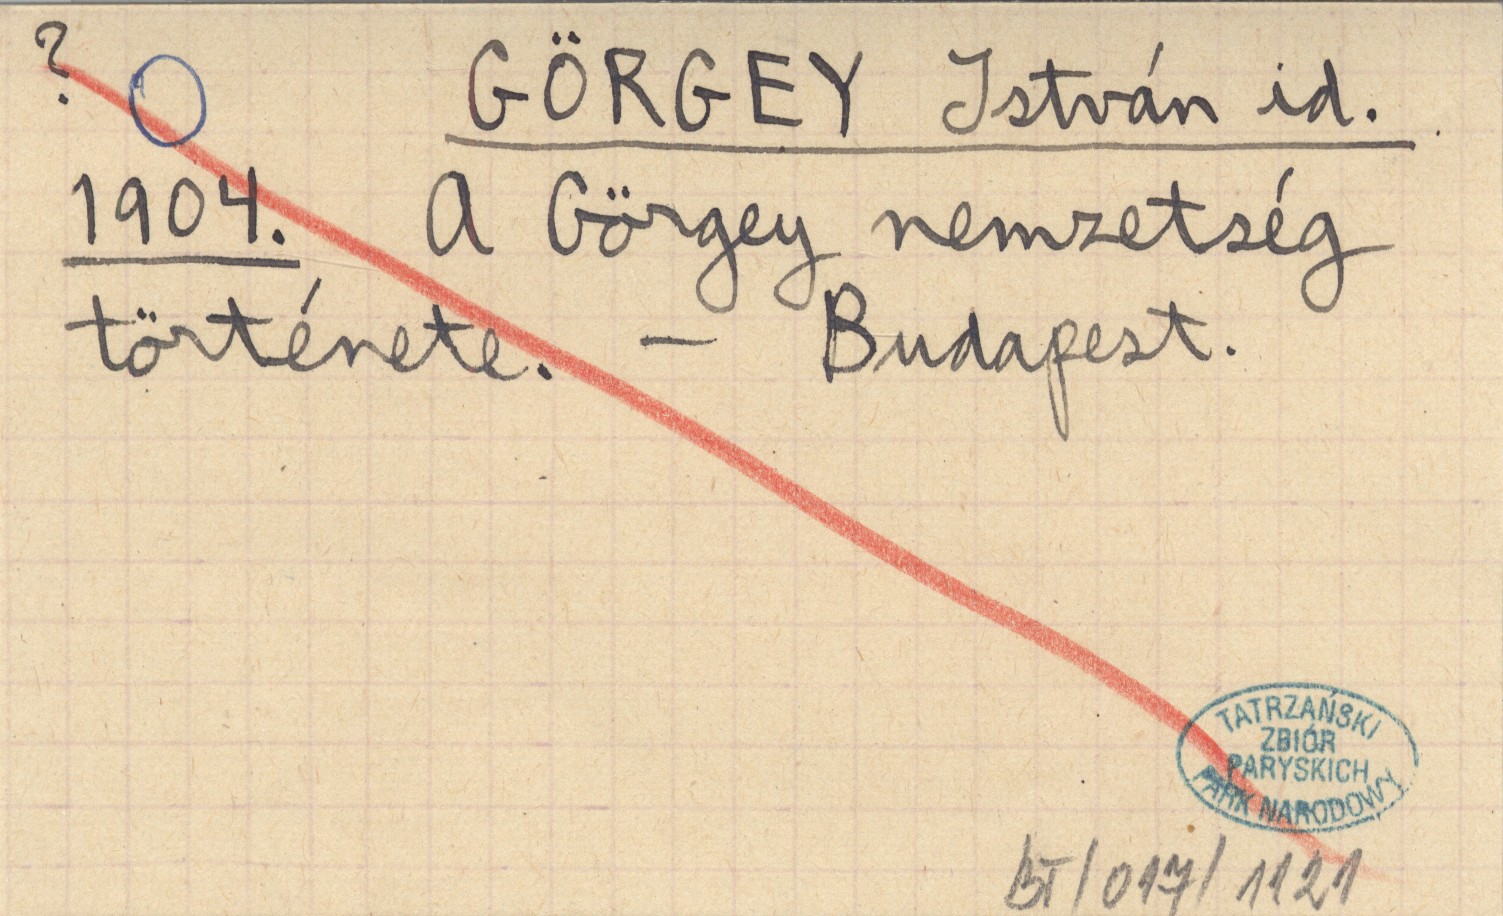 ?
GÖRGEY István id.
1904. A Görgey nemzetség
története. — Budapest.
TATRZAŃSKI
ZBIÓR
PARYSKICH
PARK NARODOWY
BT/017/1121